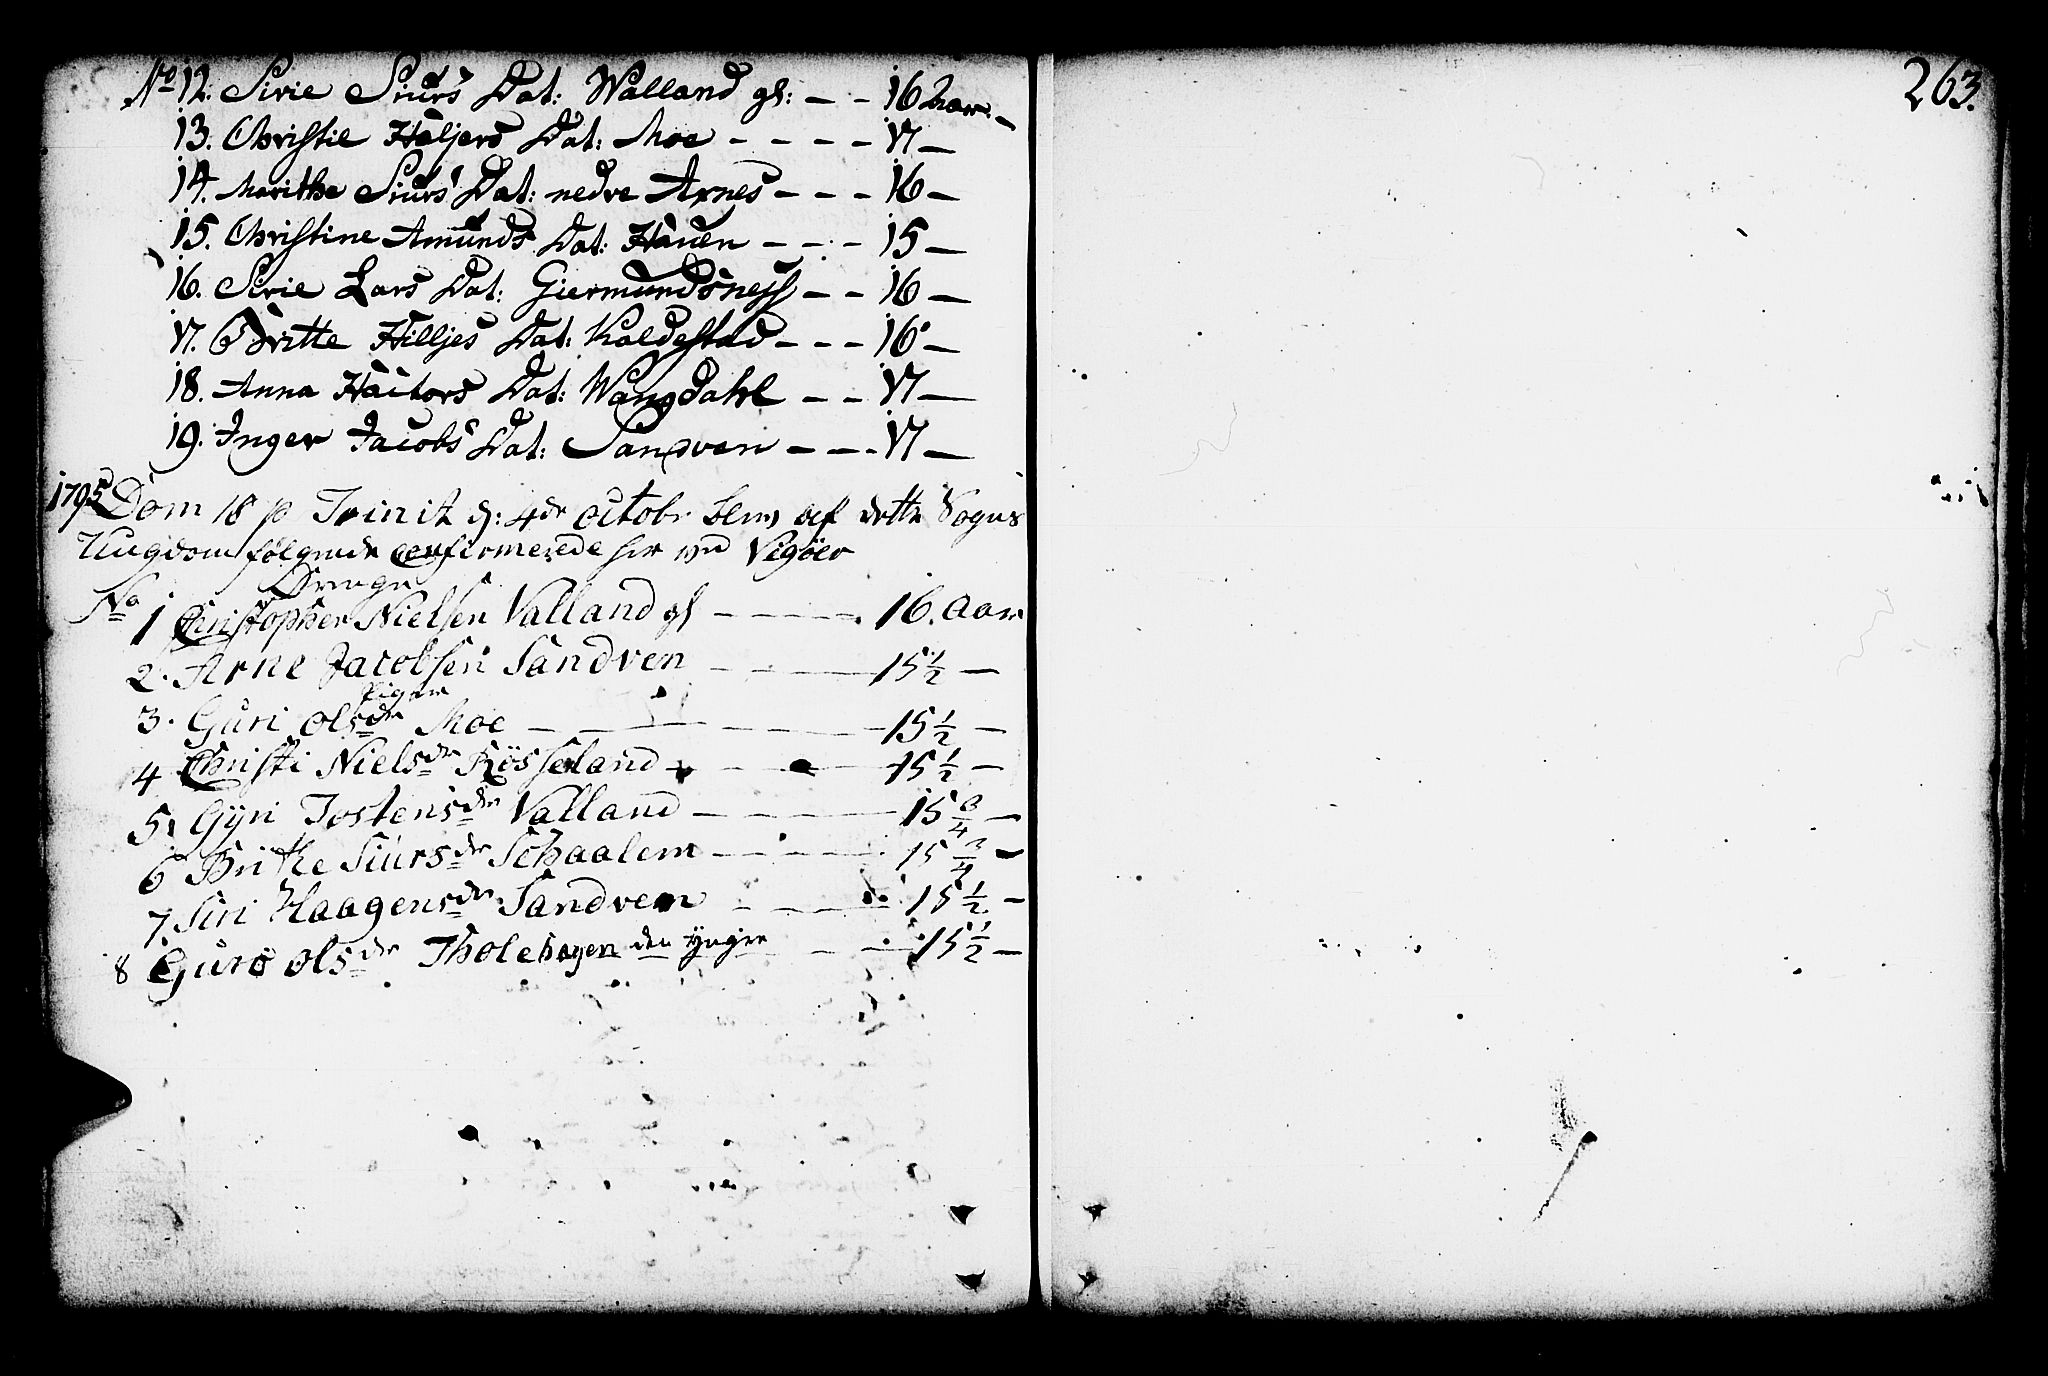 No 12. Sirie Siurs Dat: Walland gl: – – 16 Aar. –
13. Christie Heljers Dat: Moe – – – – 17 –
14. Marithe Siurs Dat: nedre Arnes – – – 16 –
15. Christine Amunds Dat: Hauen – – – 15 –
16. Sirie Lars Dat: Giermundsness – – 16 –
17. Britte Hilljes Dat: Koldestad – – – 16 –
18. Anna Haitors Dat: Wangdahl – – 17 –
19. Inger Jacobs Dat: Sandven – – – 17 –
1795 Dom 18 p Trinit d: 4de octobr blev af dette Sogns
Ungdom følgende confirmerede her ved Vigöer
Drenge
No 1 Christopher Nielsen Valland gl – – – – 16. Aar
2. Arne Jacobsen Sandven – – – 15 1/2 –
Piger
3. Guri Olsdr Moe – – – – 15 1/2 –
4 Christi Nielsdr Rösseland – – – 15 1/2 –
5. Gyri Jostensdr Valland – – – – 15 3/4 –
6 Brithe Siursdr Schaalem – – – 15 3/4 –
7. Siri Haagensdr Sandven – – – 15 1/2 –
8 Guro Olsdr Tholehagen den yngre – – 15 1/2 –
263.